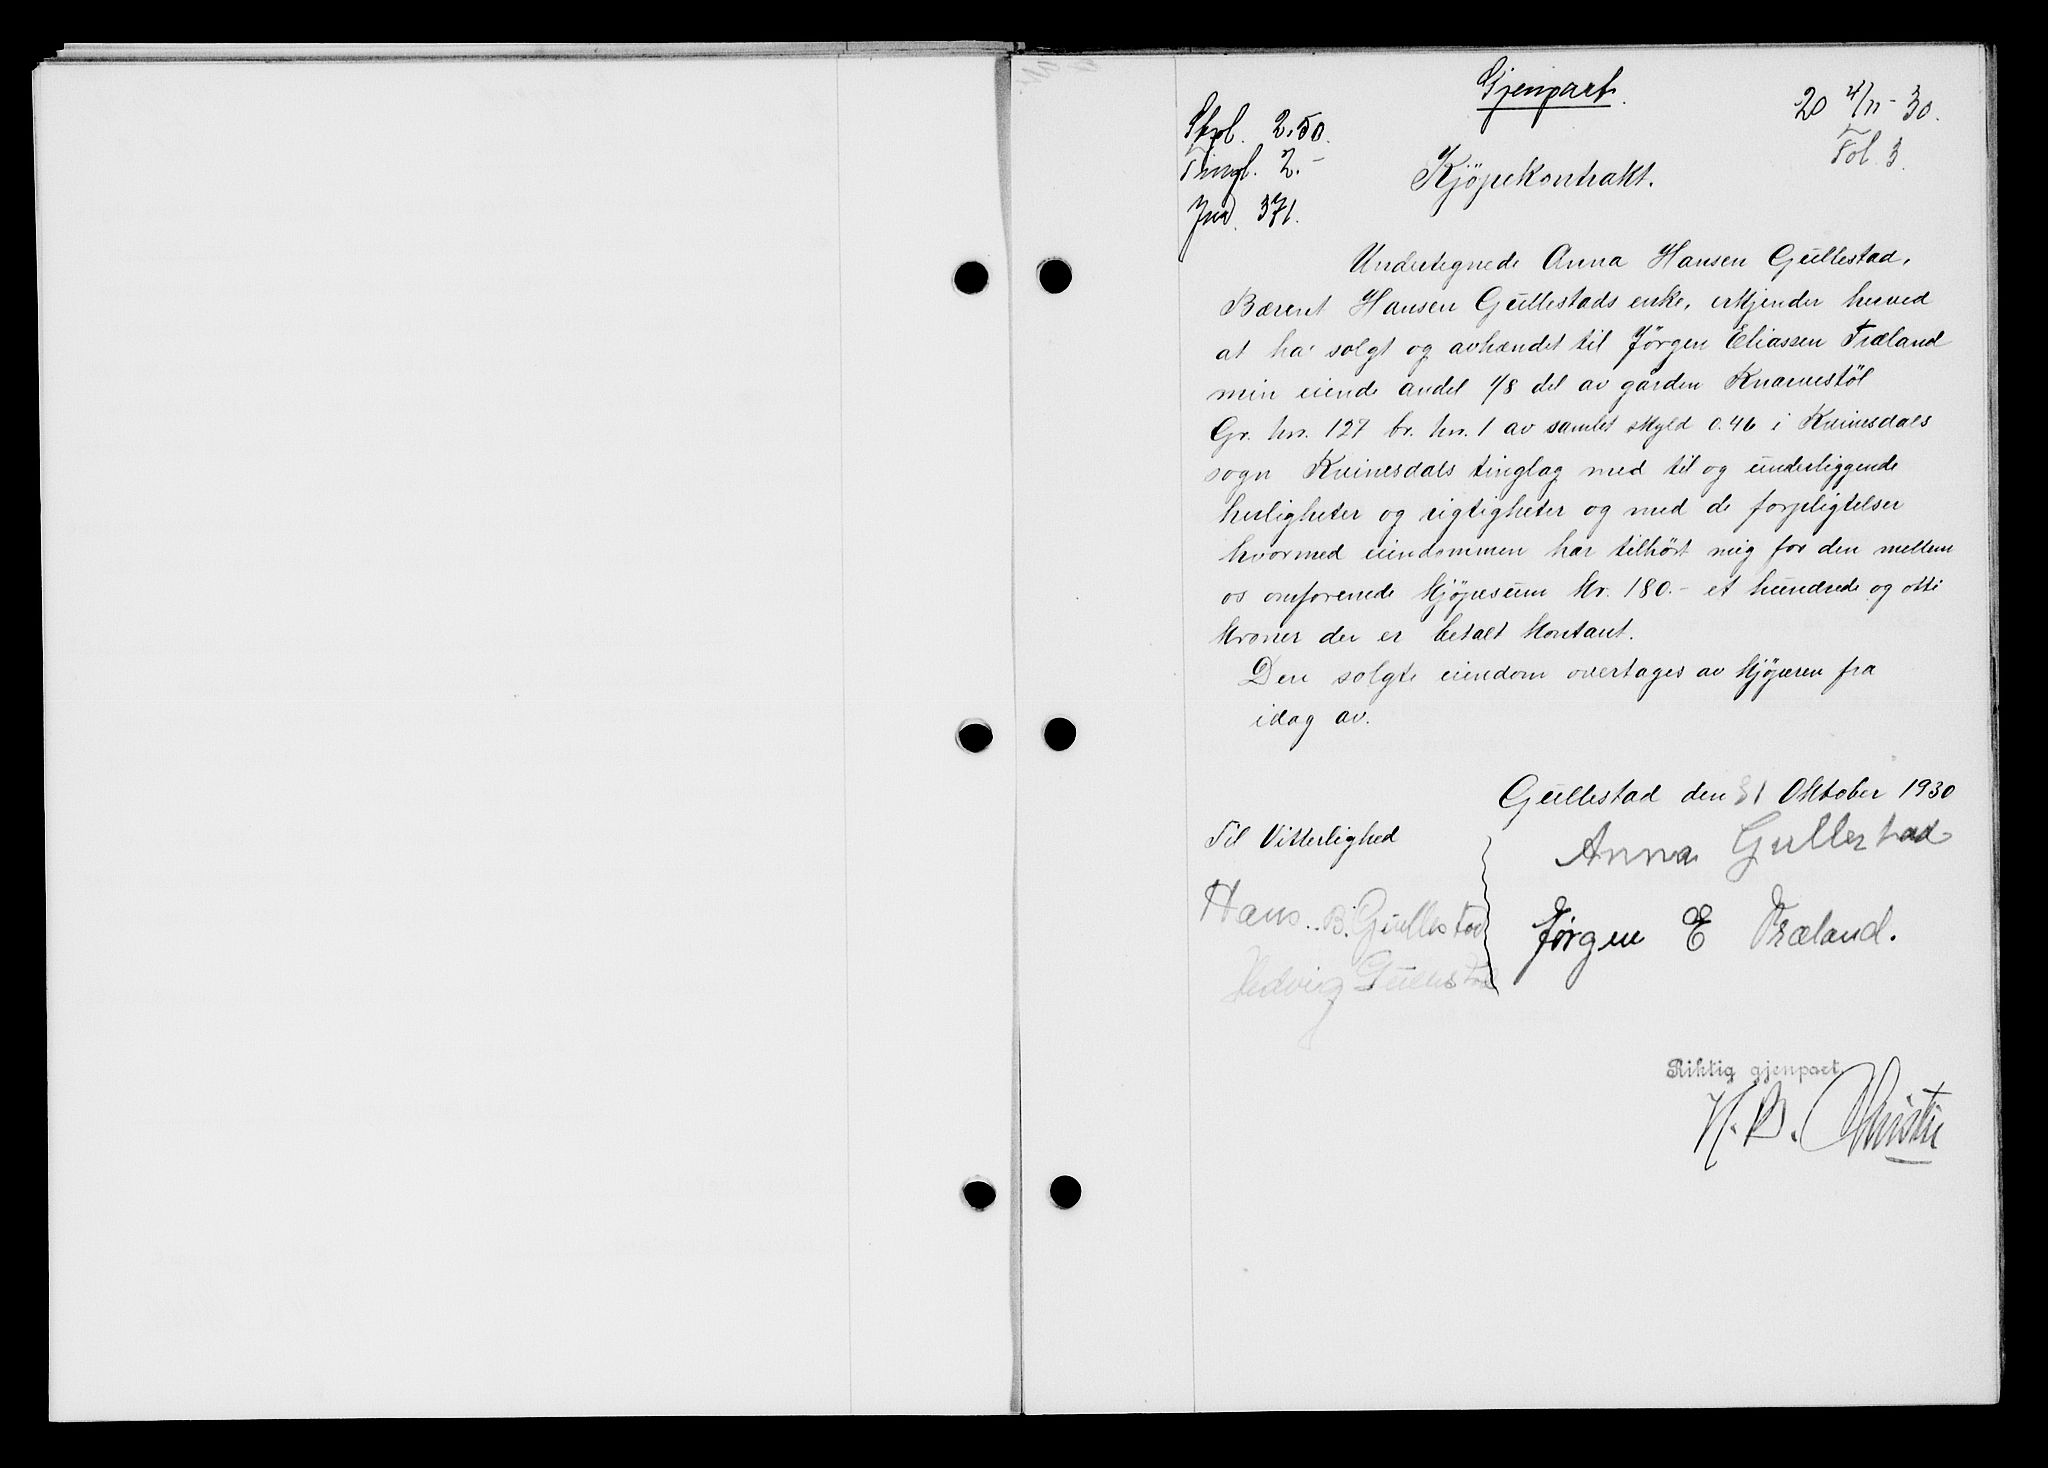 Gjenpart.
20 4/11-30.
Fol. 3.
Stpl. 2.50.
Tingl. 2.-
Jnd. 371.
Kjöpekontrakt.
Undertegnede Anna Hansen Gullestad,
Bærent Hansen Gullestads enke, erkjender herved
at ha solgt og avhændet til Jörgen Eliassen Træland
min eiende andel 1/8 del av gården Knarvestöl
Gr. nr. 127 br. nr. 1 av samlet skyld 0.46 i Kvinesdals
sogn Kvinesdals tinglag med til og underliggende
herligheter og rigtigheter og med de forpligtelser
hvormed eiendommen har tilhört mig for den mellem
os omforenede kjöpesum kr. 180.- et hundrede og otti
kroner der er betalt kontant.
Den solgte eiendom overtages av kjöperen fra
idag av.
Gullestad den 31 Oktober 1930
Til Vitterlighed
Anna Gullestad
Hans B. Gullestad
Jörgen E Træland.
Hedvig Gullestad
Riktig gjenpart
H. B. Christie